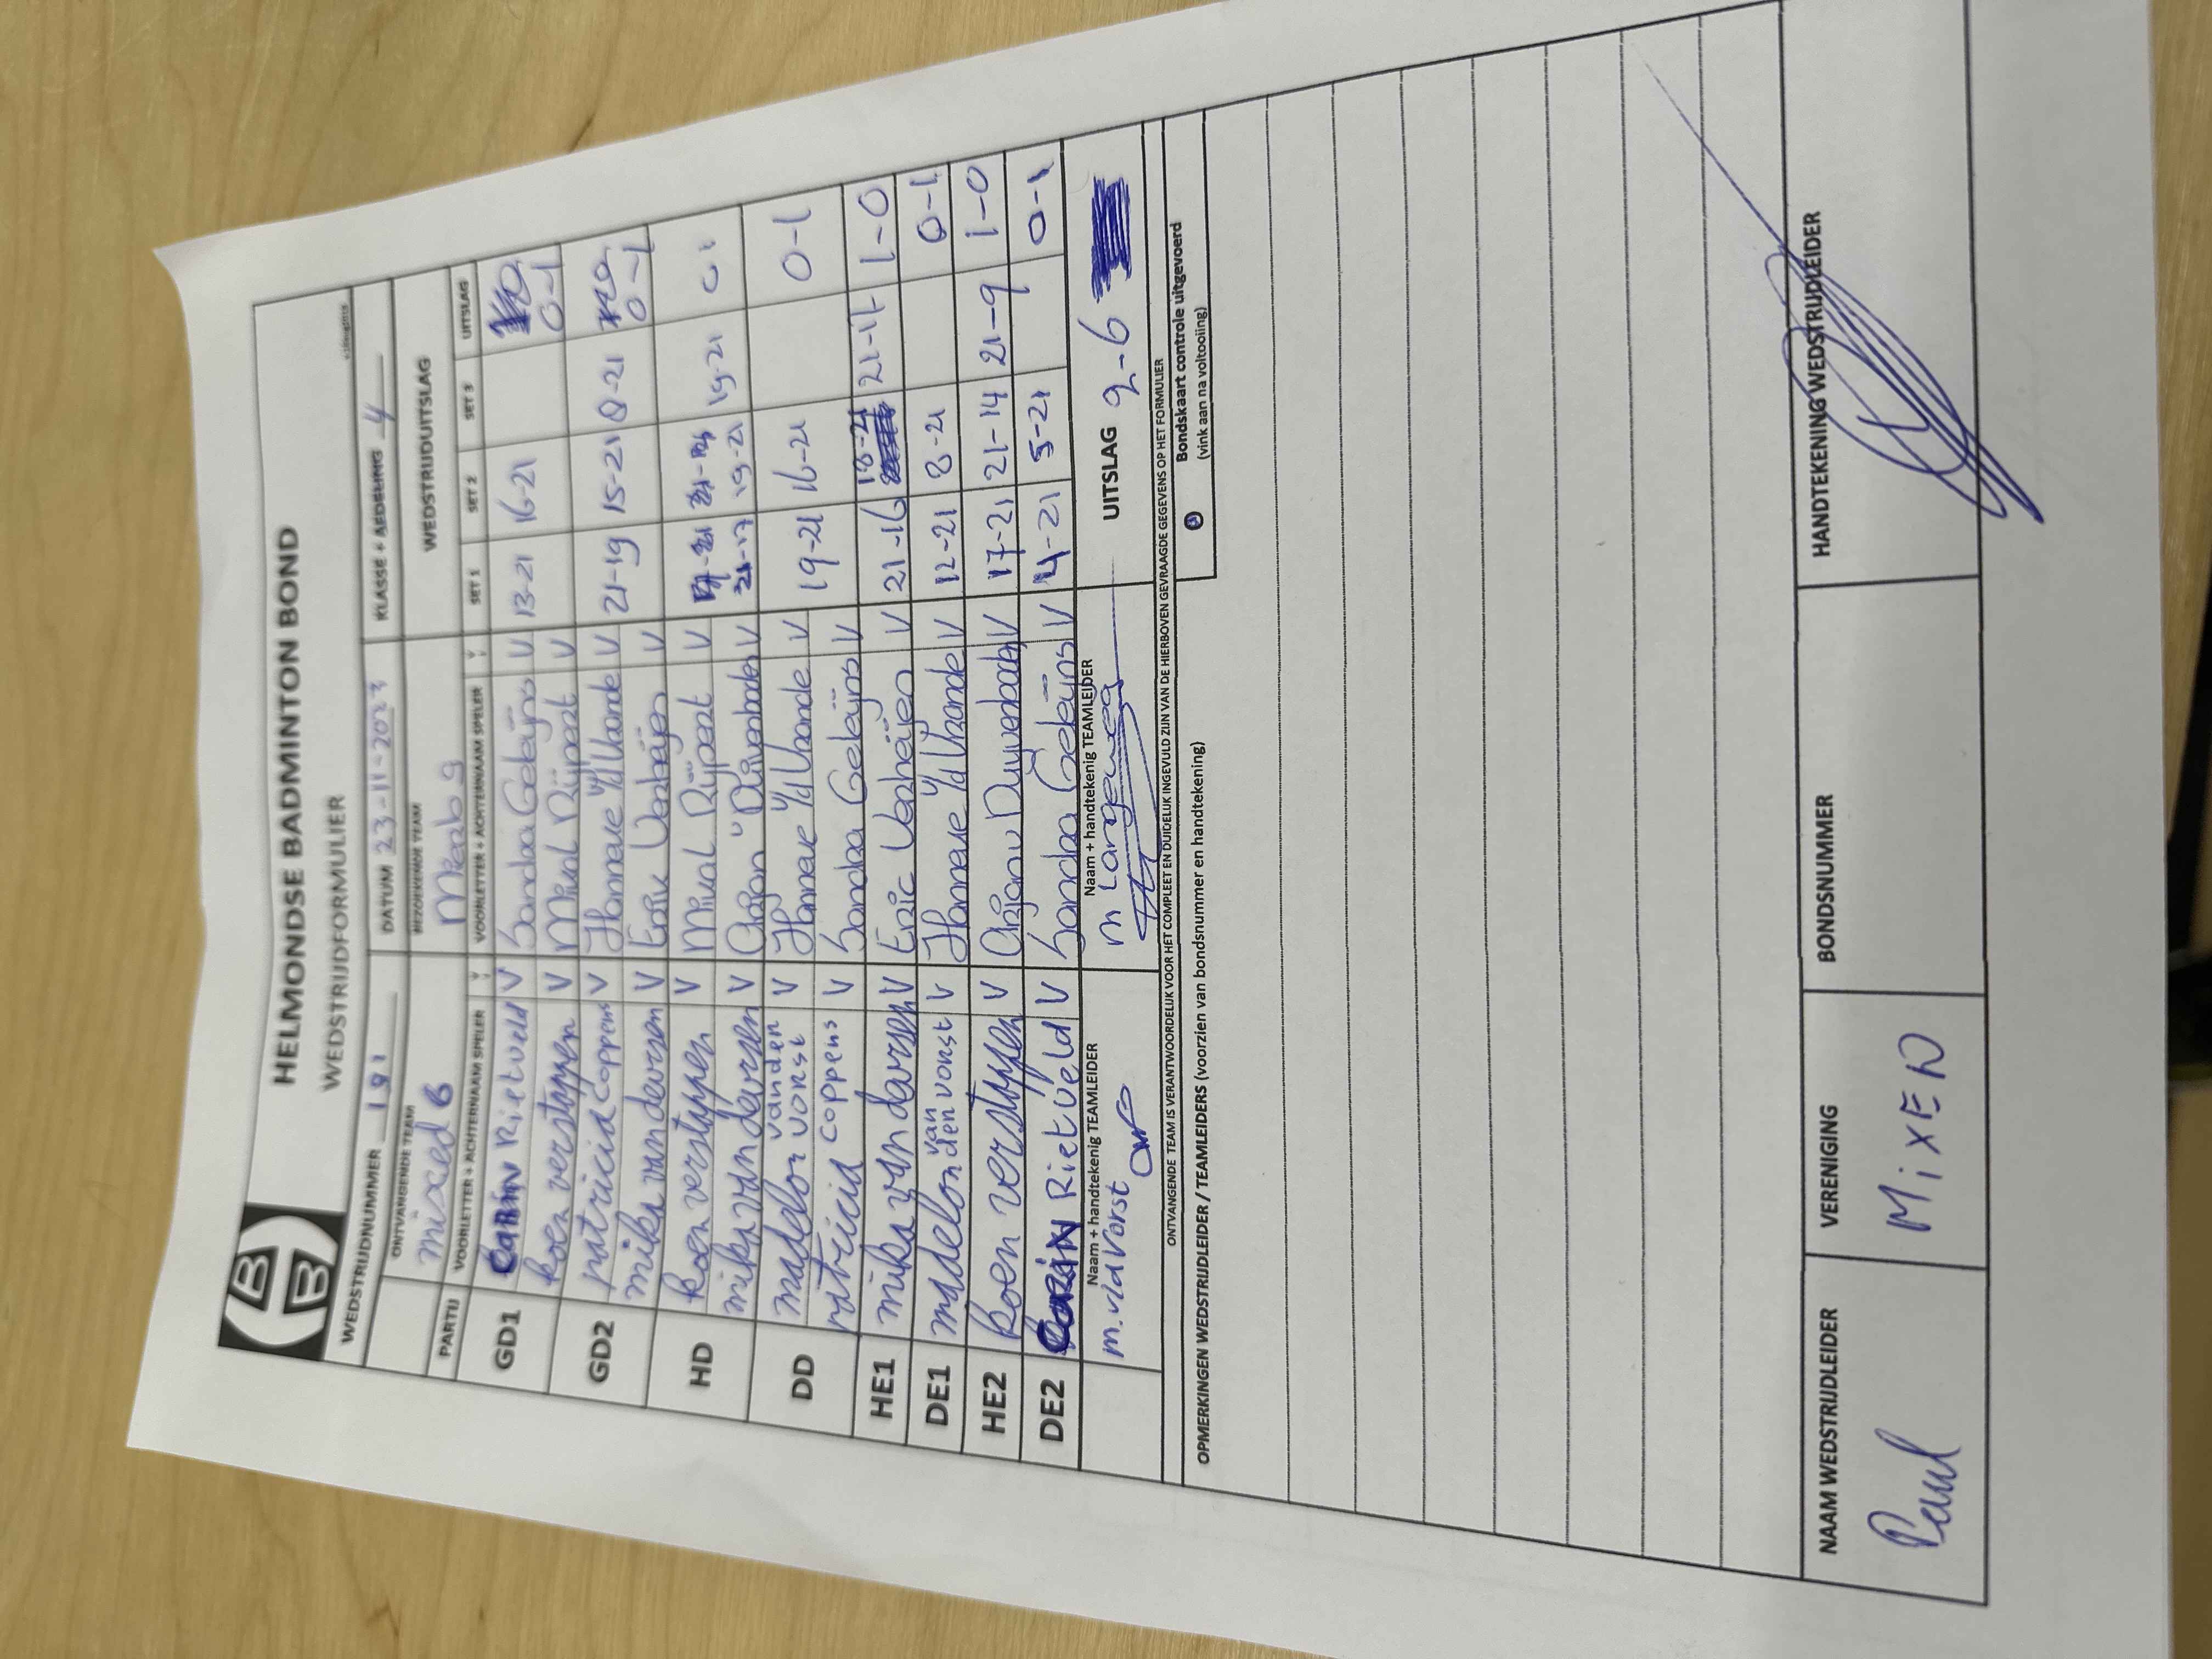 HBB
HELMONDSE BADMINTON BOND
WEDSTRIJDFORMULIER
WEDSTRIJDNUMMER 191 DATUM 23-11-2023 KLASSE + AFDELING 4
ONTVANGENDE TEAM BEZOEKENDE TEAM WEDSTRIJDUITSLAG
mixed 6 Mierlo 9
PARTIJ VOORLETTER + ACHTERNAAM SPELER V VOORLETTER + ACHTERNAAM SPELER V SET 1 SET 2 SET 3 UITSLAG
GD1 Carin Rietveld V Sandra Geleijns V 13-21 16-21 0-1
koen verstappen V Mical Rijpert V
GD2 patricia coppens V Hanneke V 21-19 15-21 8-21 0-1
mika van deursen V Eric Verheijen V
HD koen verstappen V Mical Rijpert V 21-17 19-21 19-21 0 1
mika van deursen V Arjan V
DD madelon van den vorst V Hanneke V 19-21 16-21 0-1
patricia coppens V Sandra Geleijns V
HE1 mika van deursen V Eric Verheijen V 21-16 18-21 21-17 1-0
DE1 madelon van den vorst V Hanneke V 12-21 8-21 0-1
HE2 koen verstappen V Arjan V 17-21 21-14 21-9 1-0
DE2 Carin Rietveld V Sandra Geleijns V 4-21 5-21 0-1
Naam + handtekenig TEAMLEIDER Naam + handtekenig TEAMLEIDER UITSLAG 2-6
m. v/d Vorst m Langeweg
ONTVANGENDE TEAM IS VERANTWOORDELIJK VOOR HET COMPLEET EN DUIDELIJK INGEVULD ZIJN VAN DE HIERBOVEN GEVRAAGDE GEGEVENS OP HET FORMULIER
OPMERKINGEN WEDSTRIJDLEIDER / TEAMLEIDERS (voorzien van bondsnummer en handtekening)
Bondskaart controle uitgevoerd
(vink aan na voltooiing)
NAAM WEDSTRIJDLEIDER VERENIGING BONDSNUMMER HANDTEKENING WEDSTRIJDLEIDER
Paul MIXED